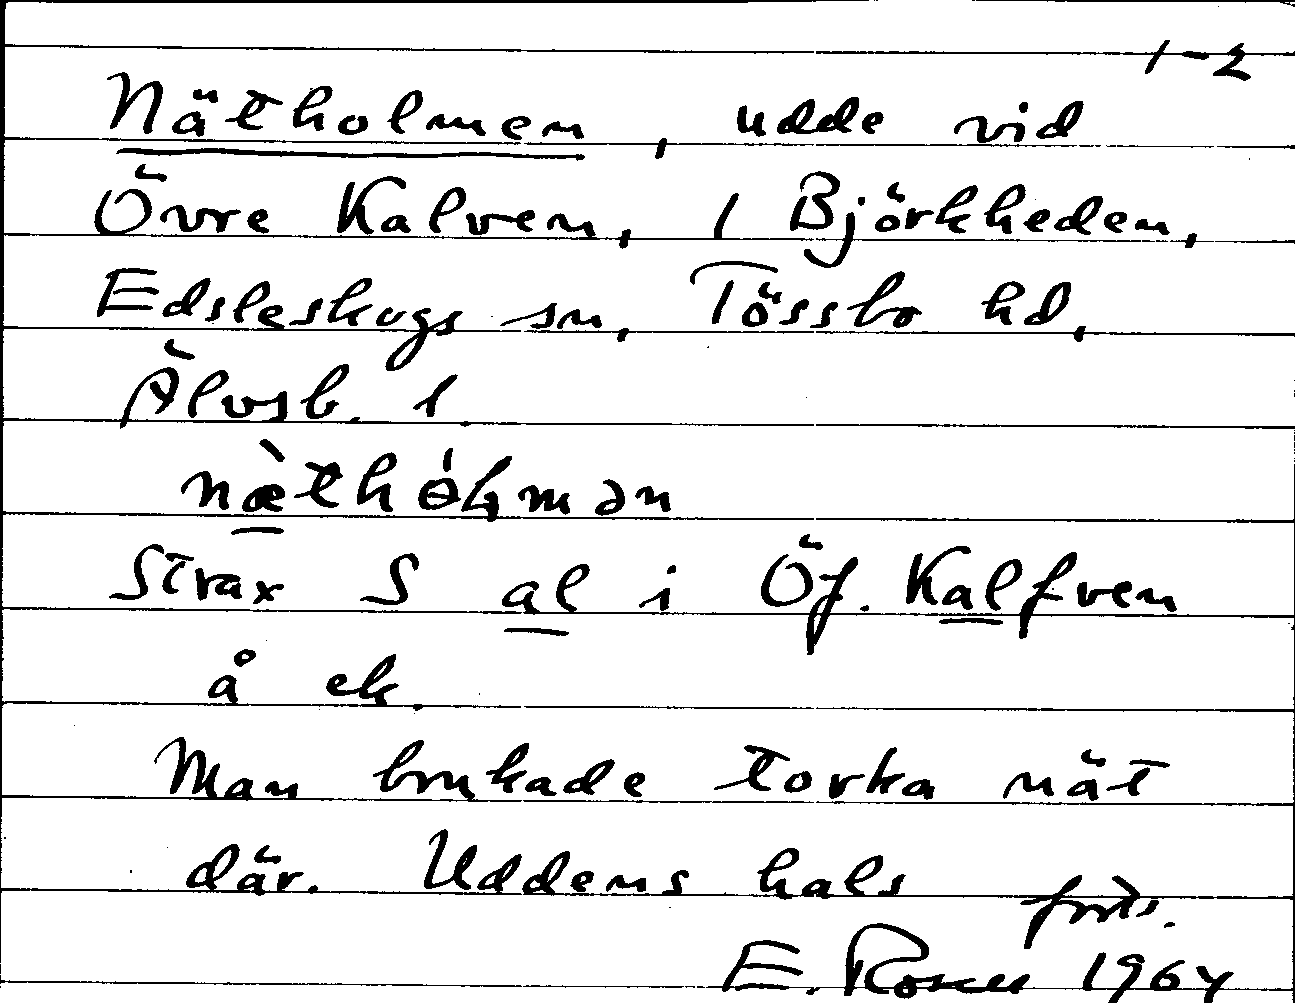 1-2
Nätholmen, udde vid
Övre Kalven, i Björkheden,
Edsleskogs sn, Tössbo hd,
Älvsb. l.
næ̀thólmən
Strax S al i Öf. Kalfven
å ek.
Man brukade torka nät
där. Uddens hals
forts.
E. Rosell 1964